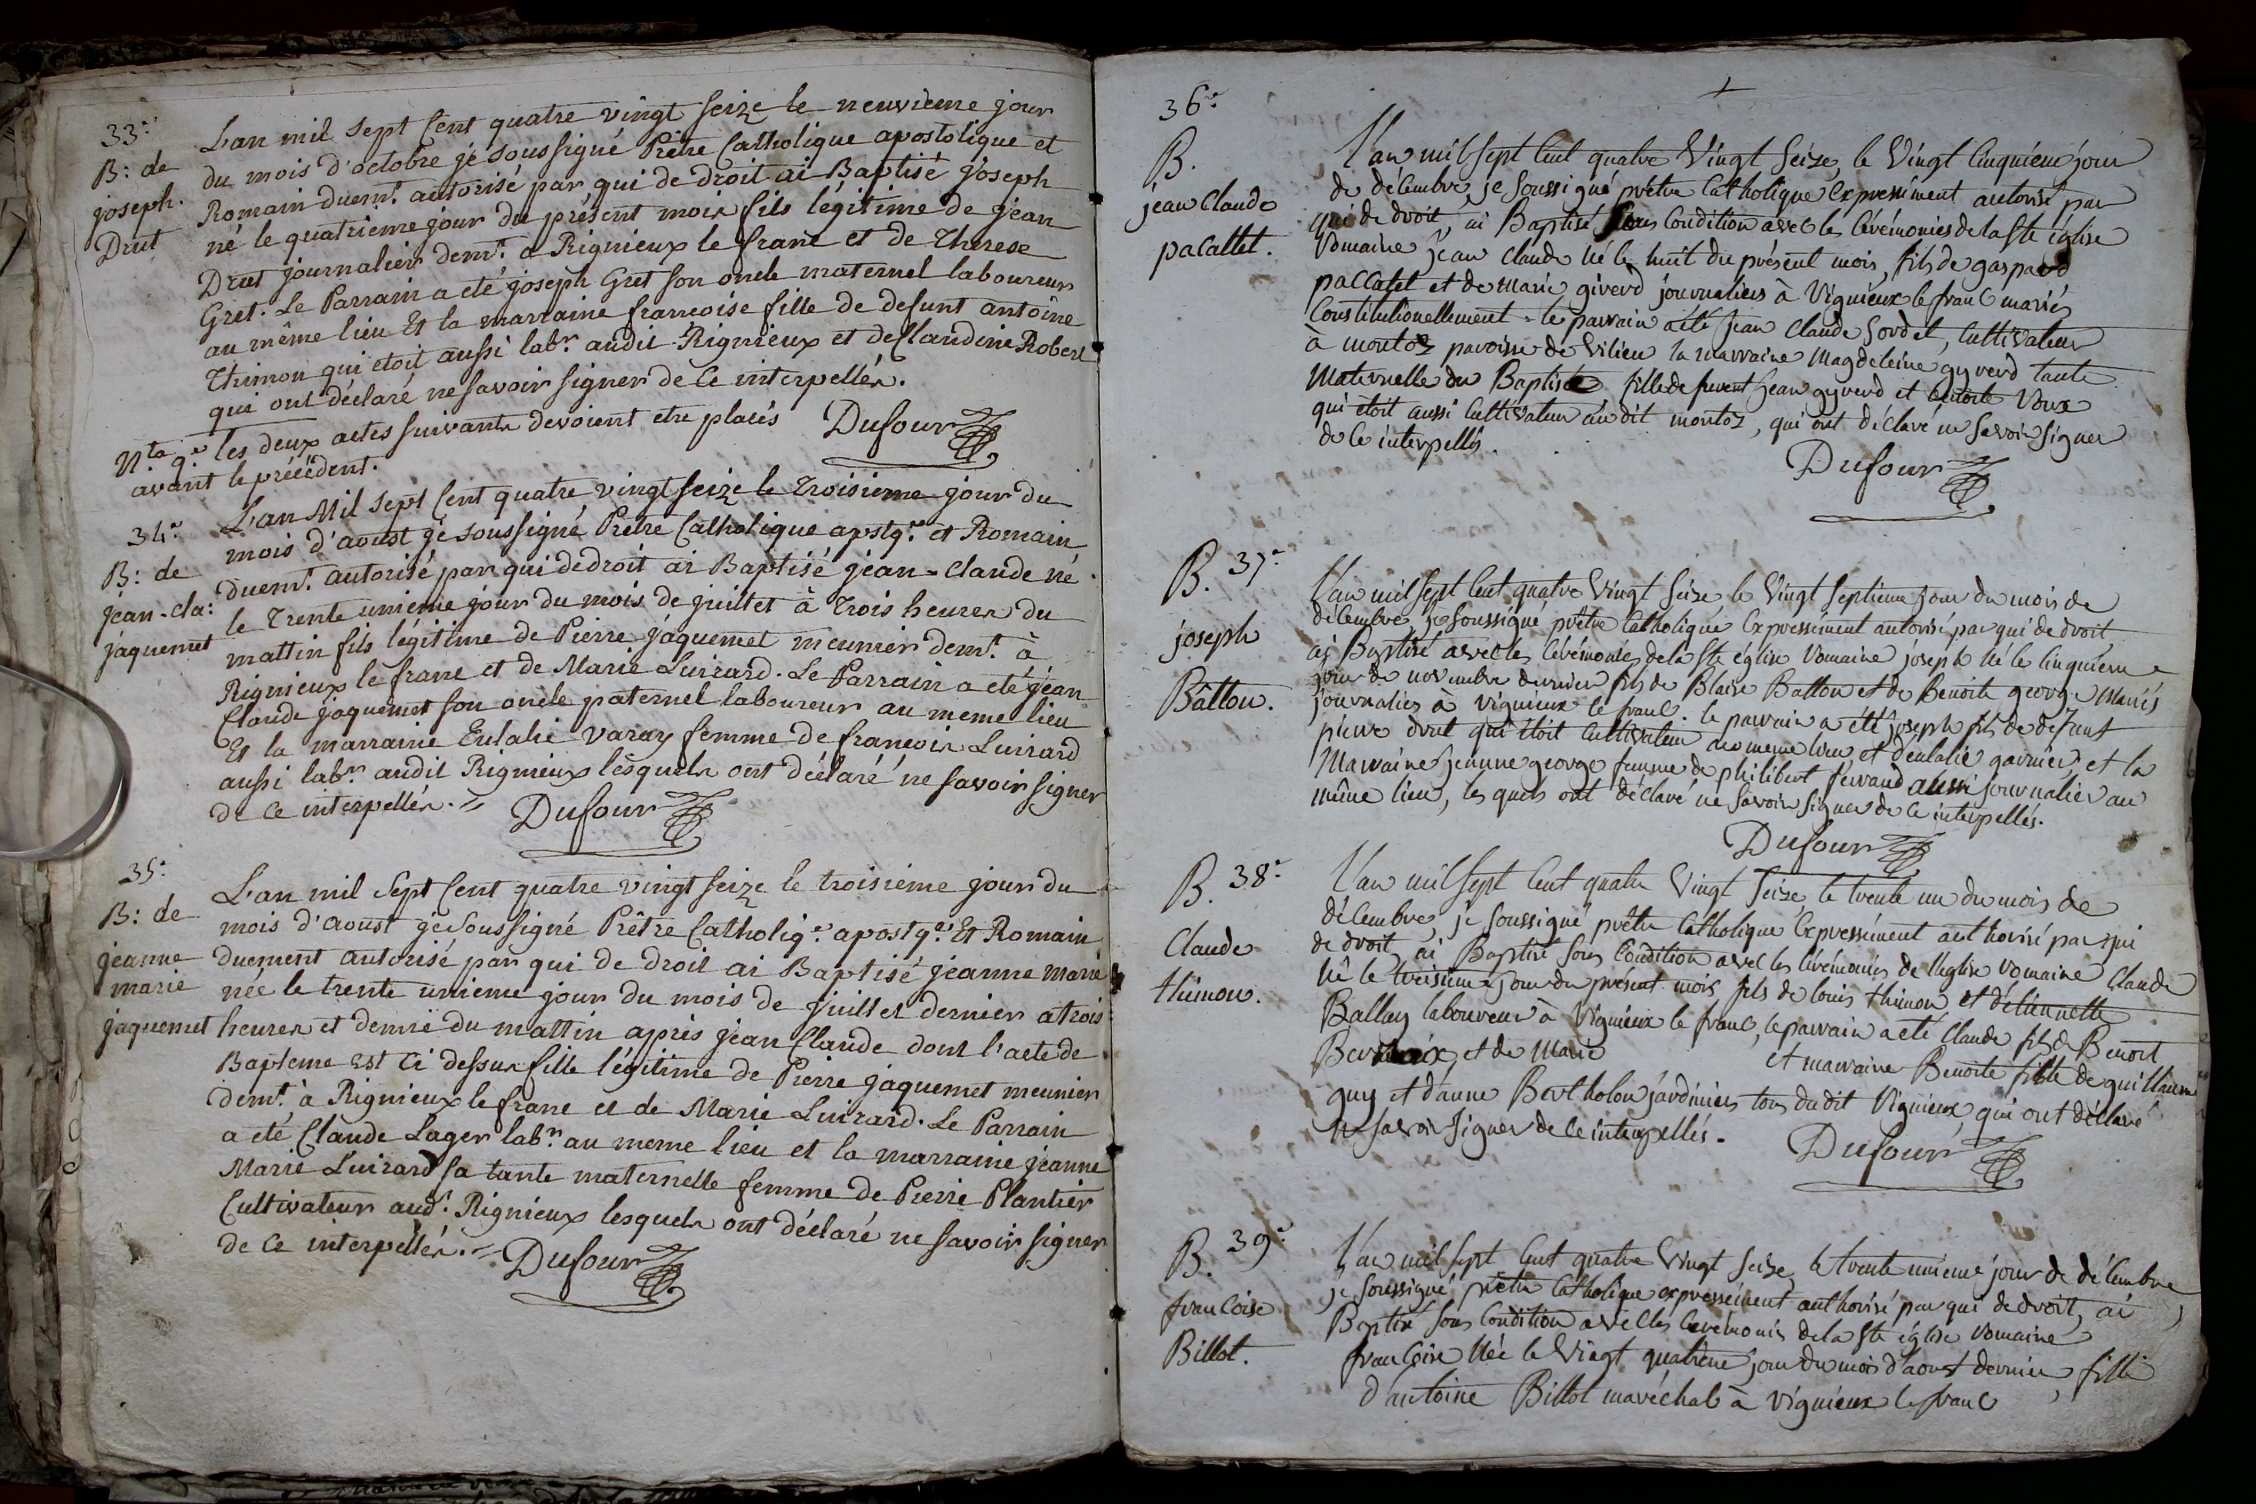 33e.
B: de
joseph.
Drut
L'an mil sept Cent quatre vingt seize le neuvieme jour
du mois d'octobre je soussigné Prêtre Catholique apostolique et
Romain duemt. autorisé par qui de droit ai Baptisé joseph
né le quatrieme jour du présent mois fils légitime de jean
Drut journalier demt. a Rignieux le franc et de Therese
Gret. Le Parrain a eté joseph Gret son oncle maternel laboureur
au même lieu Et la marraine francoise fille de defunt antoine
Thimon qui etoit aussi labr. audit Rignieux et de Claudine Robert
qui ont déclaré ne savoir signer de Ce interpellés.
Dufour
Nta. qe. les deux actes suivants devoient etre placés
avant le précédent.
34e.
B: de
jean-cla:
jaquemet
L'an Mil sept Cent quatre vingt seize le Troisieme jour du
mois d'aoust je soussigné Prêtre Catholique apstqe. et Romain
duemt. autorisé par qui de droit ai Baptisé jean-Claude né
le Trente unieme jour du mois de juillet à Trois heures du
mattin fils légitime de Pierre jaquemet meunier demt. à
Rignieux le franc et de Marie Luirard. Le Parrain a eté jean
Claude jaquemet son oncle paternel laboureur au meme lieu
Et la marraine Eulalie varay femme de francois Luirard
aussi labr. audit Rignieux lesquels ont déclaré ne savoir signer
de ce interpellés. =
Dufour
35e.
B: de
jeanne
marie
jaquemet
L'an mil Sept Cent quatre vingt seize le troisieme jour du
mois d'aoust je soussigné Prêtre Catholiqe. apostqe. Et Romain
duement autorisé par qui de droit ai Baptisé jeanne marie
née le trente unieme jour du mois de juillet dernier a trois
heures et demie du mattin après jean Claude dont l'acte de
Bapteme est Ci dessus fille légitime de Pierre jaquemet meunier
demt. à Rignieux le franc et de Marie Luirard. Le Parrain
a eté Claude Lager labr. au meme lieu et la marraine jeanne
Marie Luirard sa tante maternelle femme de Pierre Plantier
Cultivateur audt. Rignieux lesquels ont déclaré ne savoir signer
de Ce interpellés. =
Dufour
36e.
B.
jean Claude
pacallet.
L'an mil sept Cent quatre Vingt Seize, le Vingt Cinquieme jour
de décembre, je soussigné prêtre Catholique expressément autorisé par
qui de droit, ai Baptisé sous Condition avec les Cérémonies de la Ste église
romaine jean Claude né le huit du présent mois, fils de gaspard
paccalet et de Marie giverd journaliers à rignieux le franc mariés
Constitutionellement. le parrain a été jean Claude Sordet, Cultivateur
à montoz paroisse de Vilieu la marraine Magdeleine gyverd tante
Maternelle du Baptisé fille de jean gyverd et
qui étoit aussi Cultivateur au dit montoz, qui ont déclaré ne savoir signer
de Ce interpellés.
Dufour
B. 37e.
joseph
Battou.
L'an mil sept Cent quatre Vingt Seize le Vingt Septieme jour du mois de
décembre je soussigné prêtre Catholique Expressément autorisé par qui de droit
ai Baptisé avec les Cérémonies de la Ste église romaine joseph né le Cinquieme
jour de novembre dernier fils de Blaise Battou et de Benoite george mariés
journaliers à rignieux le franc. le parrain a été joseph fils de defunt
pierre drut qui étoit Cultivateur au meme lieu, et d'eulalie garnier, et la
Marraine jeanne george femme de philibert ferrand aussi journalier au
même lieu, les quels ont déclaré ne savoir signer de Ce interpellés.
Dufour
B. 38e.
Claude
thimon.
L'an mil sept Cent quatre Vingt Seize, le trente un du mois de
décembre, je soussigné prêtre Catholique Expressément authorisé par qui
de droit, ai Baptisé sous Condition avec les Cérémonies de l'église romaine Claude
né le troisieme jour du présent mois fils de louis thimon et d'étiennette
Ballay laboureur à rignieux le franc, le parrain a été Claude fils de Benoit
et de Marie et marraine Benoite fille de guillaume
guy et d'anne Bertholon jardiniers tous dudit rignieux, qui ont déclaré
ne savoir signer de Ce interpellés.
Dufour
B. 39e.
francoise
Billot.
L'an mil sept Cent quatre Vingt Seize, le trente unieme jour de décembre
je soussigné prêtre Catholique expressément authorisé par qui de droit, ai
Baptisé sous Condition avec les Cérémonies de la Ste église romaine
francoise née le Vingt quatrieme jour du mois d'aoust dernier, fille
d'antoine Billot maréchal à rignieux le franc